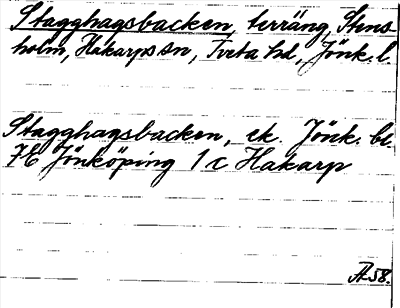 Stagghagsbacken, terräng, Stens-
holm, Hakarps sn, Tveta hd, Jönk. l.
Stagghagsbacken, ek. Jönk. bl.
7E Jönköping 1 c Hakarp
Å 58.